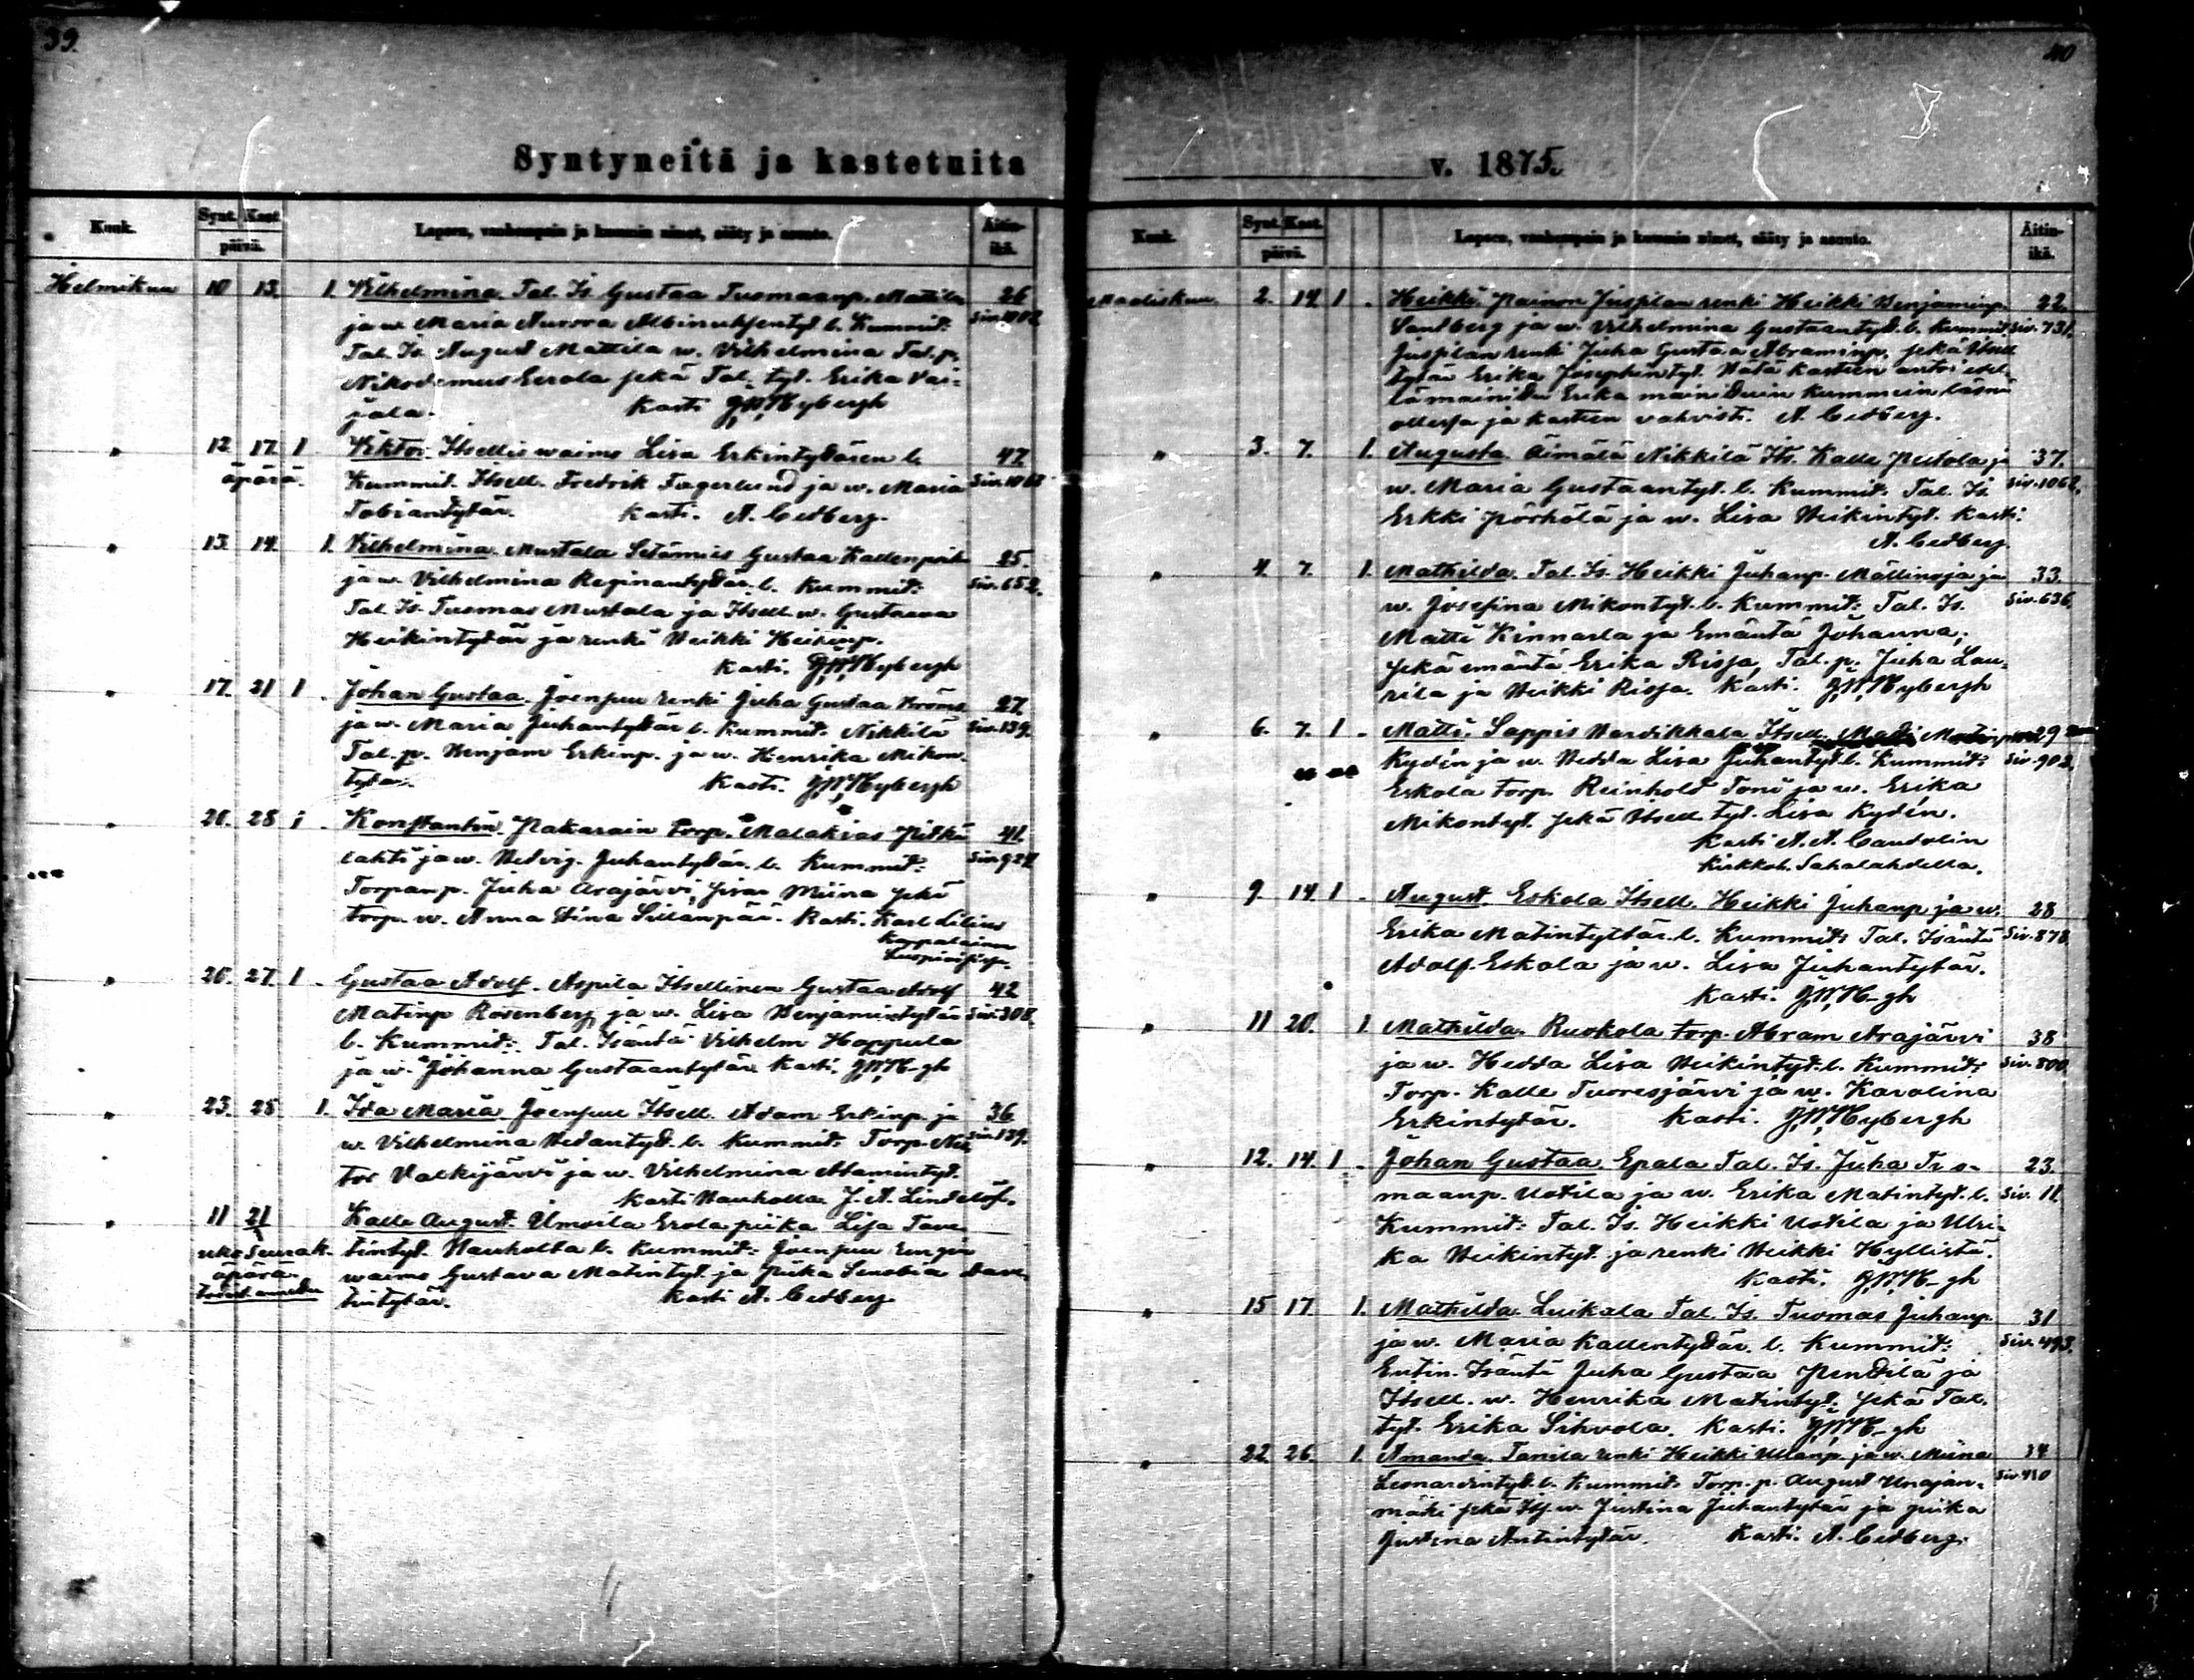 39.
Syntyneitä ja kastetuita
Kuuk.
Synt. Kast.
päivä.
Lapsen, vanhempain ja kummin nimet, sääty ja asunto.
Äitin-
ikä.
Helmikuu 10 13. 1. Vilhelmina. Tal. Is. Gustaa Tuomaanp. Mattila 26
ja w. Maria Aurora Albinuksentyt. l. Kummit: Siv. 1002
Tal. Is. August Mattila w. Vilhelmina Tal. p.
Nikodemus Eerola sekä Tal. tyt. Erika Vai-
jala. Kasti G.W. Nybergh
" 12 17. 1 Viktor. Itsellis waimo Lisa Erkintytären l. 47.
äpärä. Kummit. Itsell. Fredrik Fagerlund ja w. Maria
Tobiantytär. Kasti. A. Cedberg.
" 13. 14. 1. Vilhelmina. Mustala Sotamies Gustaa Kallenpoika 25.
ja w. Vilhelmina Reginantytär. l. Kummit: Siv. 652.
Tal. Is. Tuomas Mustala ja Itsell. w. Gustaava
Heikintytär ja renki Heikki Heikinp.
Kasti. G.W. Nybergh
" 17. 21 1. Johan Gustaa. Joenjuu renki Juha Gustaa 27.
ja w. Maria Juhantytär l. Kummit. Nikkilä Siv. 139.
Tal. p. Benjam Erkinp. ja w. Henrika Mikon-
tytär. Kasti. G.W. Nybergh
" 20. 28 1. Konstantin. Pakarain torp. Malakias Pitkä- 41.
lahti ja w. Hedvig Juhantytär. l. Kummit: Siv. 924
Torpan p. Juha Arajärvi, sisar Miina sekä
torp. w. Anna Stina Sillanpää. Kasti. Karl Lilius
Kappalainen
" 20. 27. 1. Gustaa Adolf. Aspila Itsellinen Gustaa Adolf 42
Matinp Rosenberg ja w. Lisa Benjamintytär Siv. 308.
l. Kummit: Tal. Isäntä Vilhelm Hoppula
ja w. Johanna Gustaantytär. Kasti. G.W. N-gh
" 23. 28. 1. Ida Maria. Joenjuu Itsell. Adam Erkinp. ja 36
w. Vilhelmina Hedantyt. l. Kummit. Torp. Nes- Siv. 139.
tor Valkijärvi ja w. Vilhelmina Adamintyt.
Kasti Hauholla J. A. Lindelöf.
" 11 21 Kalle August. Umoila Erola piika Lisa Tave-
uko seurak. tintyt. Hauholta l. Kummit: Joenjuu rengin
äpärä. waimo Gustava Matintyt. ja piika Senobia Dave-
tintytär. Kasti A. Cedberg
40
v. 1875.
Kuuk.
Synt. Kast.
päivä.
Lapsen, vanhempain ja kummin nimet, sääty ja asunto.
Äitin-
ikä.
Maaliskuu. 2. 14 1. Heikki. Painon Juspilan renki Heikki Benjaminp. 22.
Sandberg ja w. Vilhelmina Gustaantyt. l. Kummit. Siv. 731.
Juspilan renki Juha Gustaa Abraminp. sekä Itsell.
tytär Erika Josephintyt. Hätä kasteen antoi edel-
lämainittu Erika mainittuin kummein läsnä
ollessa ja kasteen vahvisti. A. Cedberg.
" 3. 7. 1. Augusta. Äimälä Nikkilä Its. Kalle Peltola ja 37.
w. Maria Gustaantyt. l. Kummit. Tal. Is. Siv. 1062.
Erkki Pörhölä ja w. Lisa Heikintyt. Kasti.
A. Cedberg.
" 4. 7. 1. Mathilda. Tal. Is. Heikki Juhanp. Mällinoja ja 33.
w. Josefina Mikontyt. l. Kummit: Tal. Is. Siv. 636.
Matti Kinnarla ja Emäntä Johanna,
sekä emäntä Erika Rissa, Tal. p. Juha Lau-
rila ja Heikki Rissa. Kasti. G.W. Nybergh
" 6. 7. 1. Matti. Sappis Itsell. 29
Rydén ja w. Hedda Lisa Juhantyt. l. Kummit: Siv. 902.
Eskola torp. Reinhold Toni ja w. Erika
Mikontyt. sekä Itsell. tyt. Lisa Rydén.
Kasti A. A. Candolin
Kirkkoh. Sahalahdella.
" 9. 14. 1. August. Eskola Itsell. Heikki Juhanp ja w. 28
Erika Matintyttär. l. Kummit: Tal. Isäntä Siv. 878.
Adolf Eskola ja w. Lisa Juhantytär.
Kasti. G.W. N-gh
" 11 20. 1. Mathilda. Ruokola torp. Abram Arajärvi 38
ja w. Hedda Lisa Heikintyt. l. Kummit: Siv. 800.
Torp. Kalle Tuoresjärvi ja w. Karolina
Erkintytär. Kasti. G.W. Nybergh
" 12. 14. 1. Johan Gustaa. Epala Tal. Is. Juha Tuo- 23.
maanp. Uotila ja w. Erika Matintyt. l. Siv. 11.
Kummit: Tal. Is. Heikki Uotila ja Ulri-
ka Heikintyt. ja renki Heikki Hyllistä.
Kasti. G.W. N-gh
" 15 17 1. Mathilda. Luikala Tal. Is. Tuomas Juhanp. 31
ja w. Maria Kallentytär. l. Kummit: Siv. 493.
Entin. Isäntä Juha Gustaa Penttilä ja
Itsell. w. Henrika Matintyt. sekä Tal.
tyt. Erika Sihvola. Kasti. G.W. N-gh
" 22. 26. 1. Amanda. Tanila renki Heikki Ullanp. ja w. Miina 34
Leonardintyt. l. Kummit. Torp. p. August Unajan- Siv. 410
mäki sekä Its. w. Justina Juhantytär ja piika
Justina Antintytär. Kasti. A. Cedberg.